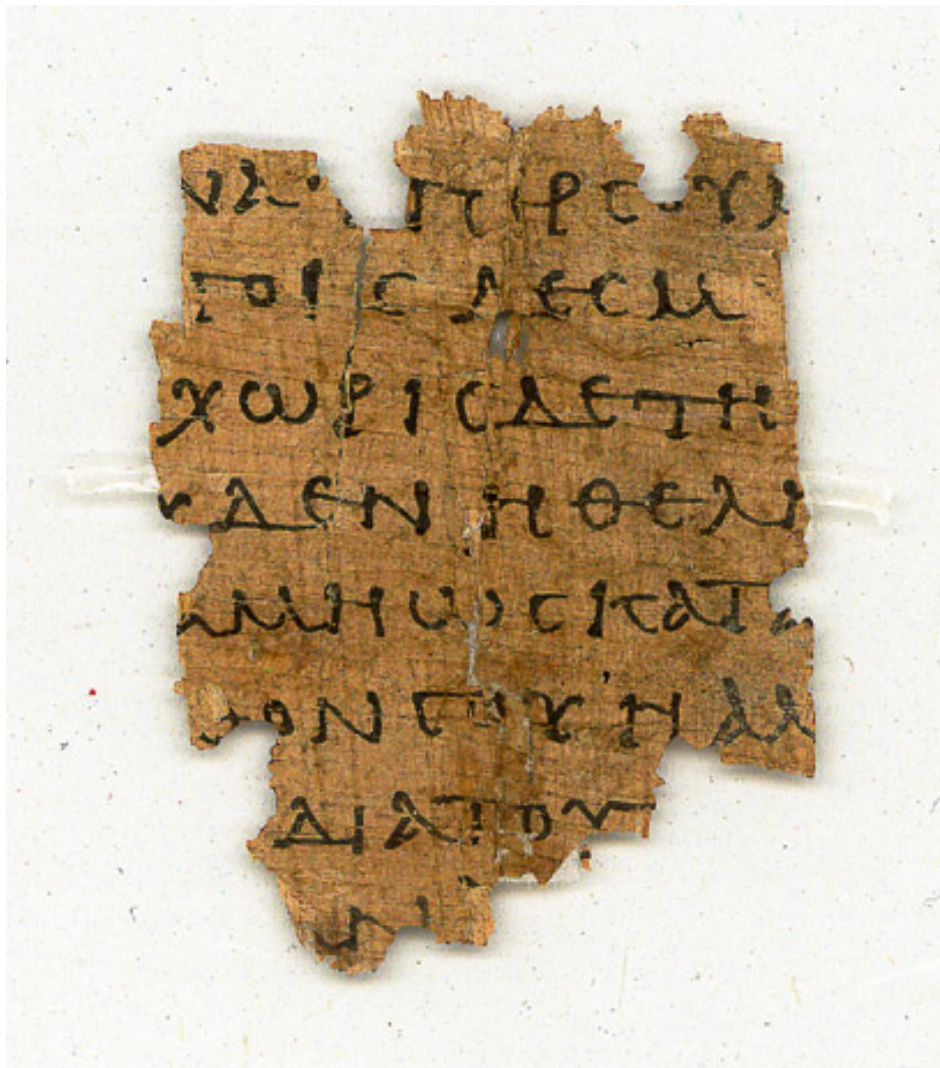 ΝΑΥΠΕΡϹΟΥ
ΤΟΙϹΔΕϹΜ
ΧΩΡΙϹΔΕΤΗ
ΥΔΕΝΗΘΕΛΗ
ΑΜΗΩϹΚΑΤΑΑ
ΘΟΝϹΟΥΗΑΛΛ
ΔΙΑΤΟΥΤ
ΩΝ